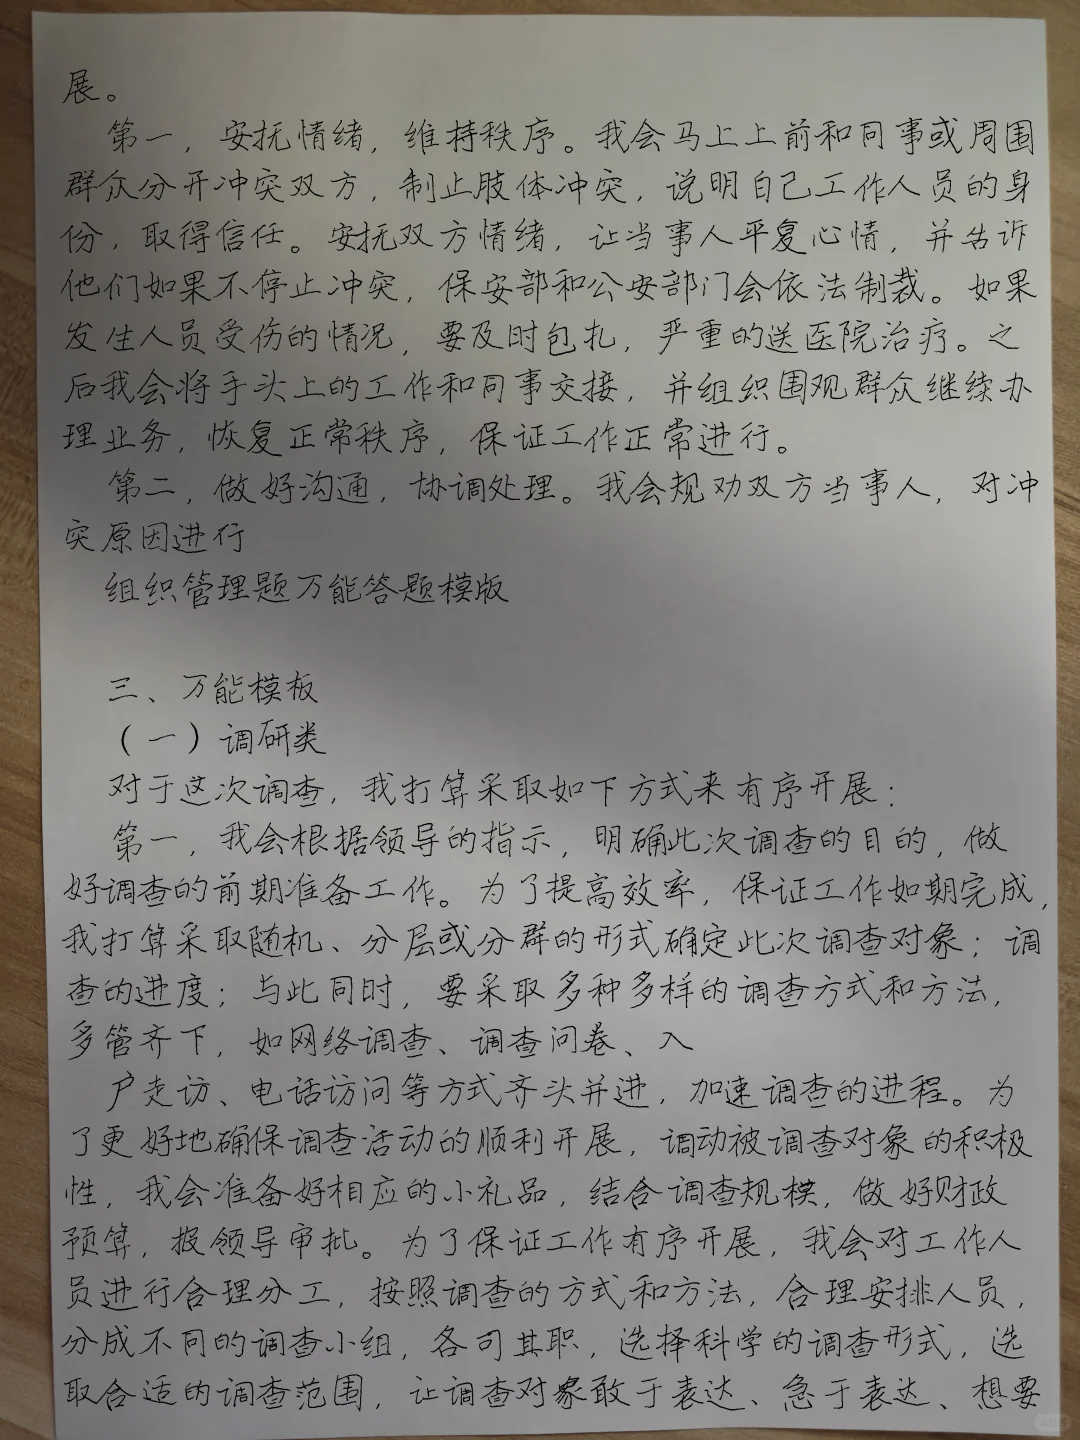 展。
第一，安抚情绪，维持秩序。我会马上上前和同事或周围
群众分开冲突双方，制止肢体冲突，说明自己工作人员的身
份，取得信任。安抚双方情绪，让当事人平复心情，并告诉
他们如果不停止冲突，保安部和公安部门会依法制裁。如果
发生人员受伤的情况，要及时包扎，严重的送医院治疗。之
后我会将手头上的工作和同事交接，并组织围观群众继续办
理业务，恢复正常秩序，保证工作正常进行。
第二，做好沟通，协调处理。我会规劝双方当事人，对冲
突原因进行
组织管理题万能答题模版
三、万能模板
（一）调研类
对于这次调查，我打算采取如下方式来有序开展：
第一，我会根据领导的指示，明确此次调查的目的，做
好调查的前期准备工作。为了提高效率，保证工作如期完成，
我打算采取随机、分层或分群的形式确定此次调查对象；调
查的进度；与此同时，要采取多种多样的调查方式和方法，
多管齐下，如网络调查、调查问卷、入
户走访、电话访问等方式齐头并进，加速调查的进程。为
了更好地确保调查活动的顺利开展，调动被调查对象的积极
性，我会准备好相应的小礼品，结合调查规模，做好财政
预算，报领导审批。为了保证工作有序开展，我会对工作人
员进行合理分工，按照调查的方式和方法，合理安排人员，
分成不同的调查小组，各司其职，选择科学的调查形式，选
取合适的调查范围，让调查对象敢于表达、急于表达、想要